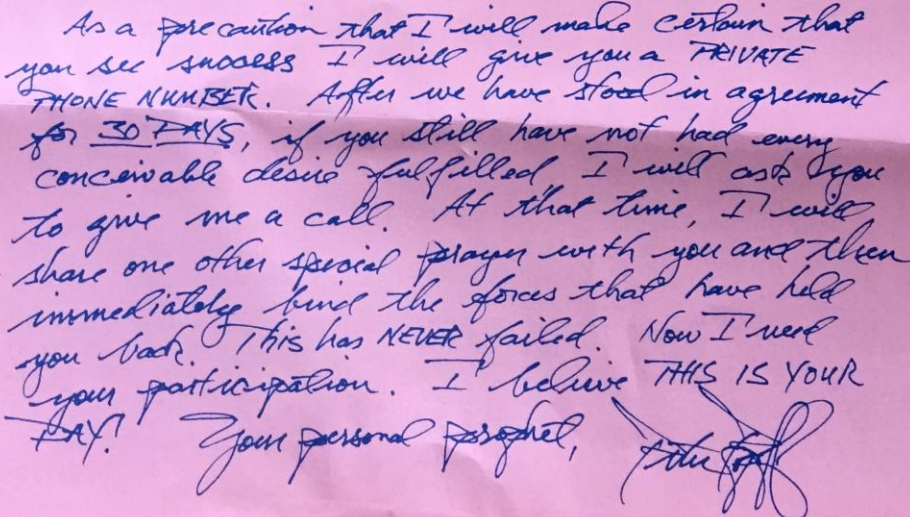 As a precaution that I will make certain that
you see success I will give you a PRIVATE
PHONE NUMBER. After we have stood in agreement
for 30 DAYS, if you still have not had every
conceivable desire fulfilled I will ask you
to give me a call. At that time, I will
share one other special prayer with you and then
immediately bind the forces that have held
you back. This has NEVER failed. Now I need
your participation. I believe THIS IS YOUR
DAY! Your personal prophet,